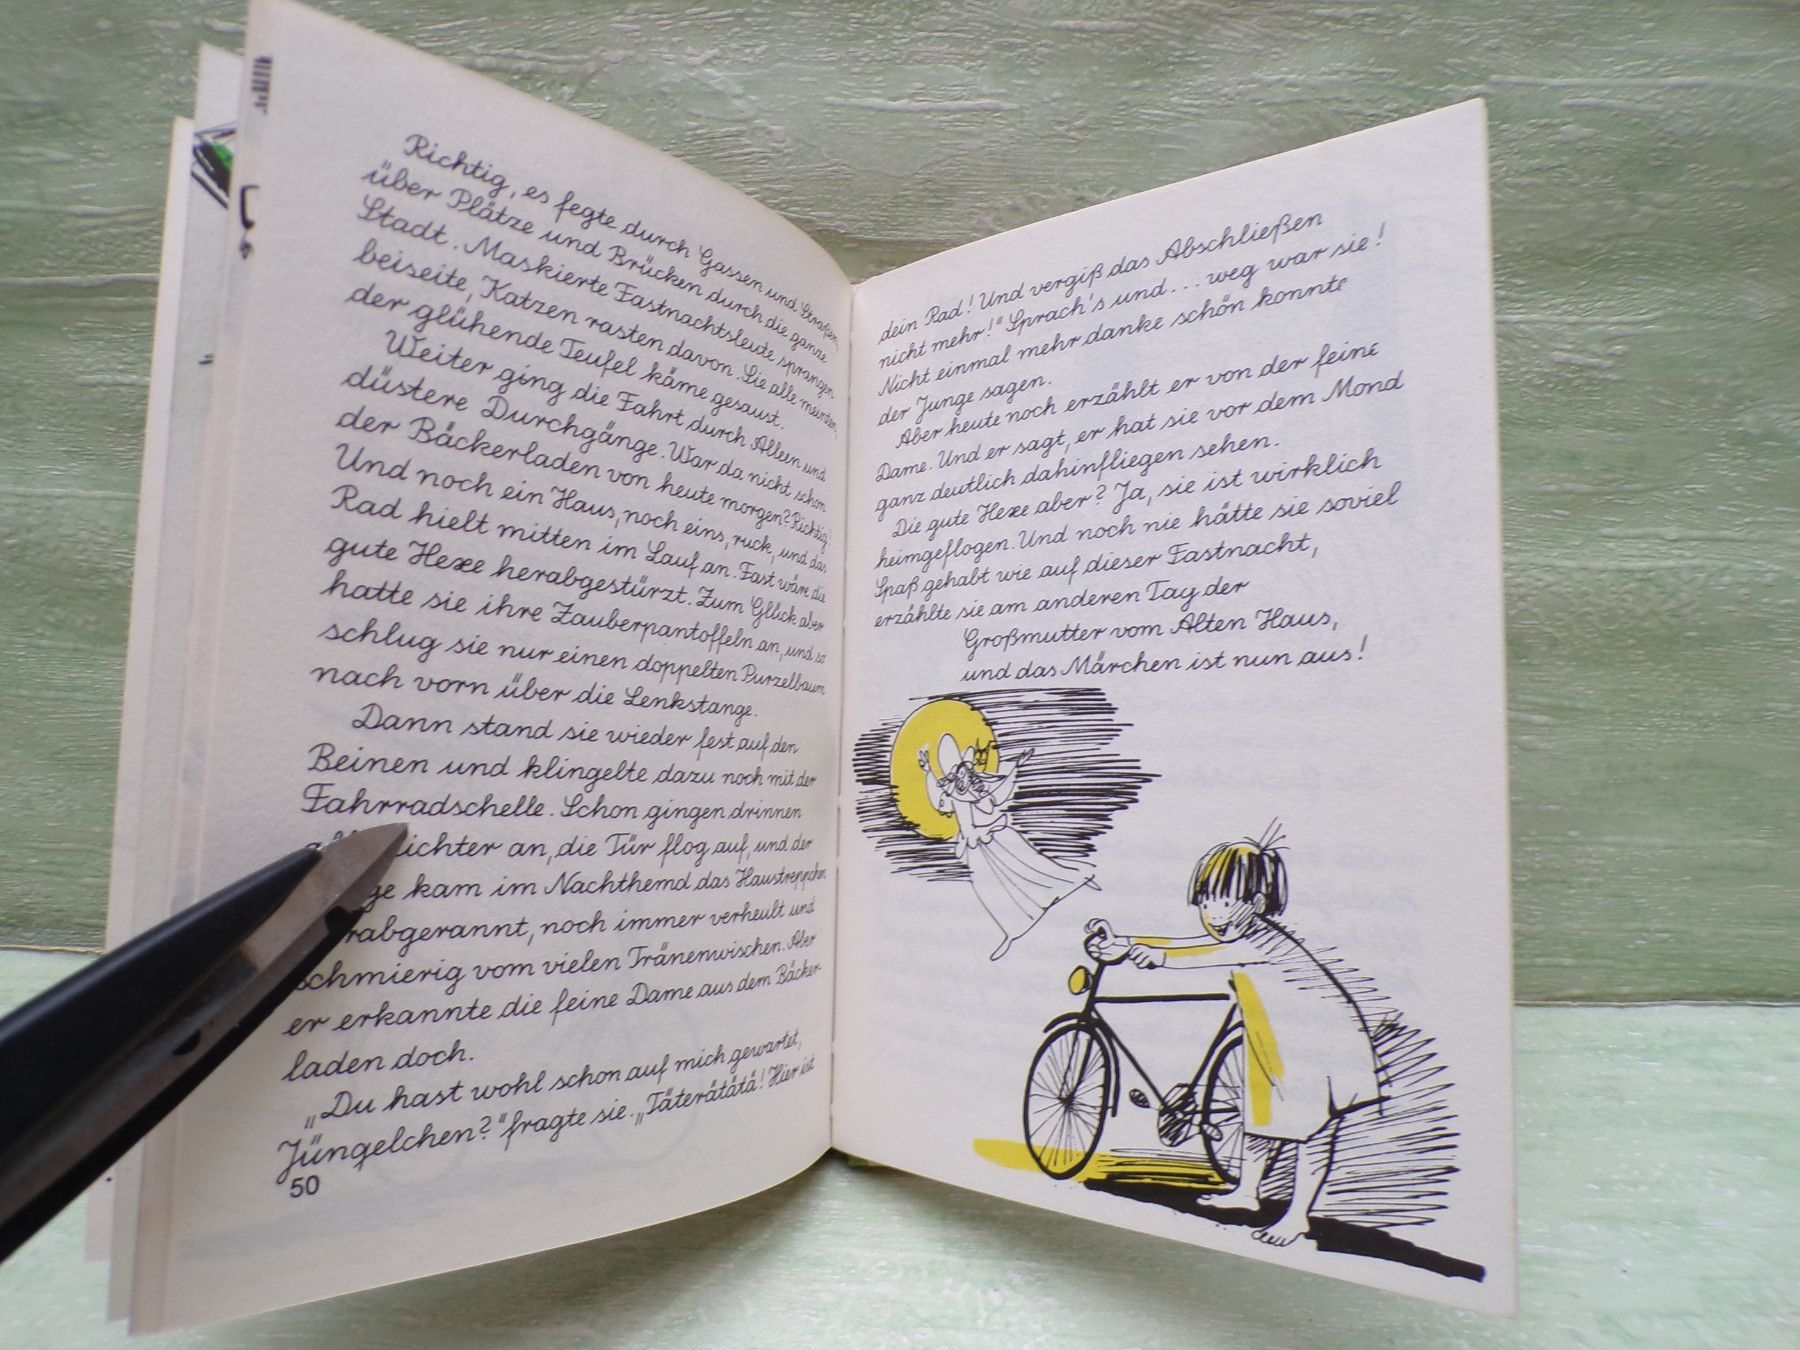 Richtig, es fegte durch Gassen und Straßen,
über Plätze und Brücken durch die ganze
Stadt. Maskierte Fastnachtsleute sprangen
beiseite, Katzen rasten davon. Sie alle meinten,
der glühende Teufel käme gesaust.
Weiter ging die Fahrt durch Alleen und
düstere Durchgänge. War da nicht schon
der Bäckerladen von heute morgen? Richtig!
Und noch ein Haus, noch eins, ruck, und das
Rad hielt mitten im Lauf an. Fast wäre die
gute Hexe herabgestürzt. Zum Glück aber
hatte sie ihre Zauberpantoffeln an, und so
schlug sie nur einen doppelten Purzelbaum
nach vorn über die Lenkstange.
Dann stand sie wieder fest auf den
Beinen und klingelte dazu noch mit der
Fahrradschelle. Schon gingen drinnen
an, die Tür flog auf, und der
kam im Nachthemd das Haustreppchen
noch immer verheult und
schmierig vom vielen Tränenwischen. Aber
er erkannte die feine Dame aus dem Bäcker-
laden doch.
„Du hast wohl schon auf mich gewartet,
Jüngelchen?" fragte sie. „Täterätätä! Hier ist
50
dein Rad! Und vergiß das Abschließen
nicht mehr!" Sprach's und... weg war sie!
Nicht einmal mehr danke schön konnte
der Junge sagen.
Aber heute noch erzählt er von der feine
Dame. Und er sagt, er hat sie vor dem Mond
ganz deutlich dahinfliegen sehen.
Die gute Hexe aber? Ja, sie ist wirklich
heimgeflogen. Und noch nie hätte sie soviel
Spaß gehabt wie auf dieser Fastnacht,
erzählte sie am anderen Tag der
Großmutter vom Alten Haus,
und das Märchen ist nun aus!